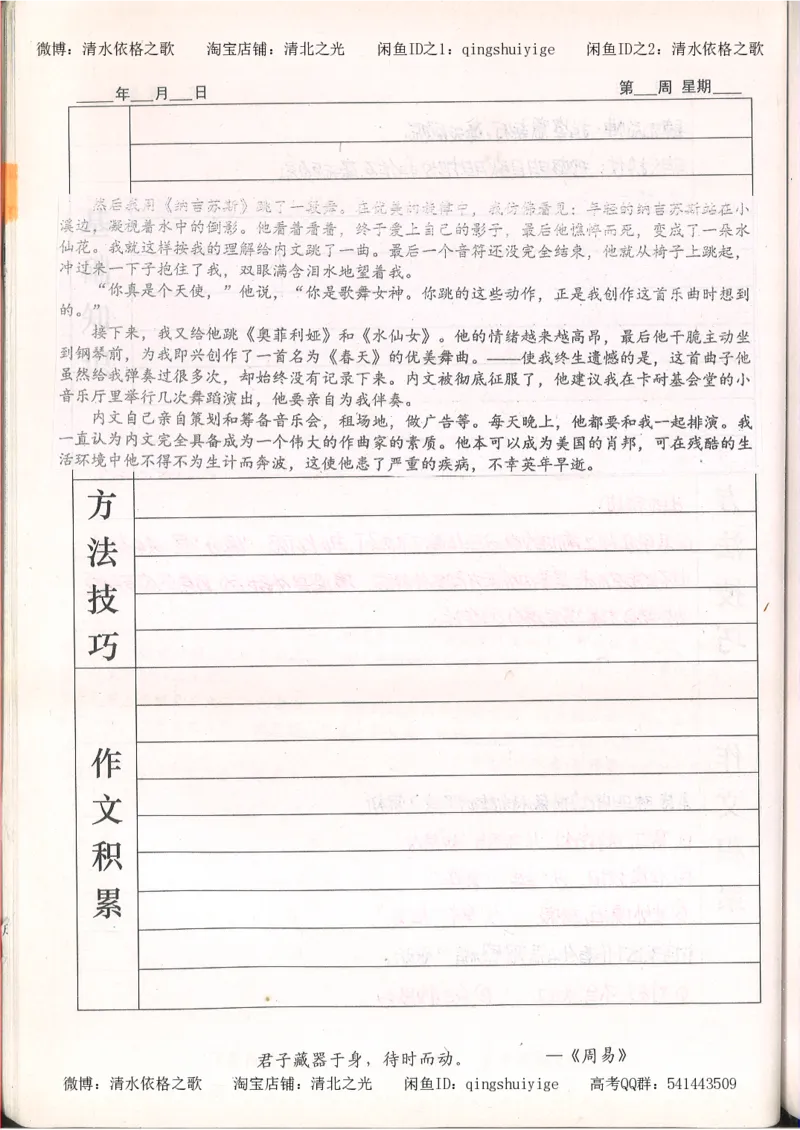 微博：清水依格之歌　　淘宝店铺：清北之光　　闲鱼ID之1：qingshuiyige　　闲鱼ID之2：清水依格之歌
____年___月___日　　第___周 星期____
然后我用《纳吉苏斯》跳了一段舞。在优美的旋律中，我仿佛看见：年轻的纳吉苏斯站在小
溪边，凝视着水中的倒影。他看着看着，终于爱上自己的影子，最后他憔悴而死，变成了一朵水
仙花。我就这样按我的理解给内文跳了一曲。最后一个音符还没完全结束，他就从椅子上跳起，
冲过来一下子抱住了我，双眼满含泪水地望着我。
“你真是个天使，”他说，“你是歌舞女神。你跳的这些动作，正是我创作这首乐曲时想到
的。”
接下来，我又给他跳《奥菲利娅》和《水仙女》。他的情绪越来越高昂，最后他干脆主动坐
到钢琴前，为我即兴创作了一首名为《春天》的优美舞曲。——使我终生遗憾的是，这首曲子他
虽然给我弹奏过很多次，却始终没有记录下来。内文被彻底征服了，他建议我在卡耐基会堂的小
音乐厅里举行几次舞蹈演出，他要亲自为我伴奏。
内文自己亲自策划和筹备音乐会，租场地，做广告等。每天晚上，他都要和我一起排演。我
一直认为内文完全具备成为一个伟大的作曲家的素质。他本可以成为美国的肖邦，可在残酷的生
活环境中他不得不为生计而奔波，这使他患了严重的疾病，不幸英年早逝。
方法技巧
作文积累
君子藏器于身，待时而动。　　—《周易》
微博：清水依格之歌　　淘宝店铺：清北之光　　闲鱼ID：qingshuiyige　　高考QQ群：541443509